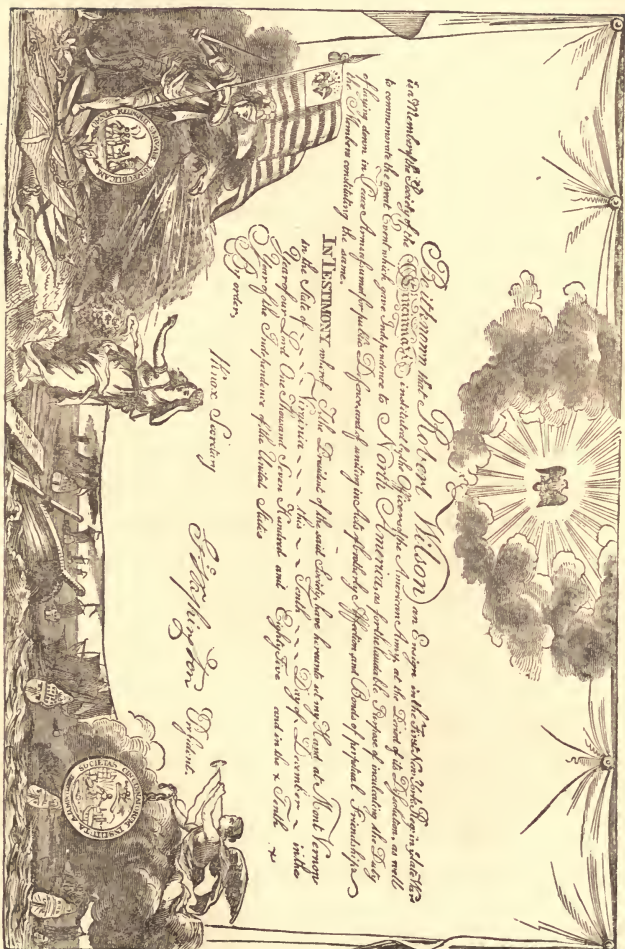 Be it known that Robert Wilson an Ensign in the First New York Reg: in ye late War
is a Member of the Society of the Cincinnati; instituted by the Officers of the American Army, at the Period of its Dissolution, as well
to commemorate the great Event which gave Independence to North America, as for the laudable Purpose of inculcating the Duty
of laying down in Peace Arms assumed for public Defence, and of uniting in Acts of brotherly Affection, and Bonds of perpetual Friendship
the Members constituting the same.
IN TESTIMONY whereof I, the President of the said Society, have hereunto set my Hand at Mount Vernon
in the State of Virginia this Tenth Day of December in the
Year of our Lord One Thousand Seven Hundred and Eighty Five and in the Tenth
Year of the Independence of the United States.
By order,
Knox Secretary
G Washington President.